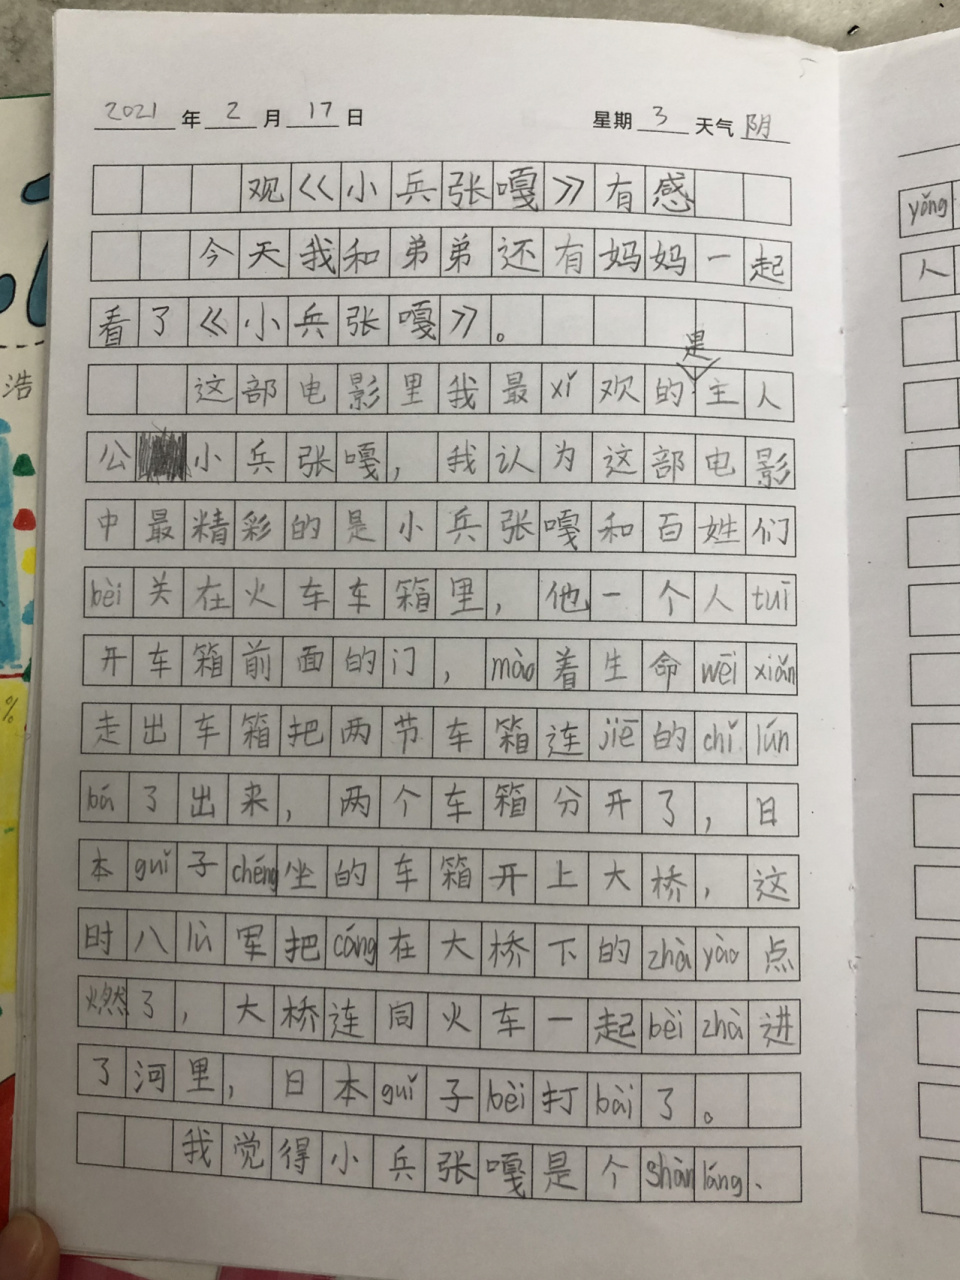 2021 年 2 月 17 日 星期 3 天气 阴
观《小兵张嘎》有感
今天我和弟弟还有妈妈一起
看了《小兵张嘎》。
是
这部电影里我最xǐ欢的主人
公小兵张嘎，我认为这部电影
中最精彩的是小兵张嘎和百姓们
bèi关在火车车箱里，他一个人tuī
开车箱前面的门，mào着生命wēi xiǎn
走出车箱把两节车箱连jiē的chǐ lún
bá了出来，两个车箱分开了，日
本guǐ子chéng坐的车箱开上大桥，这
时八lù军把cáng在大桥下的zhà yào点
燃了，大桥连同火车一起bèi zhà进
了河里，日本guǐ子bèi打bài了。
我觉得小兵张嘎是个shàn láng、
yǒng
人
浩
%